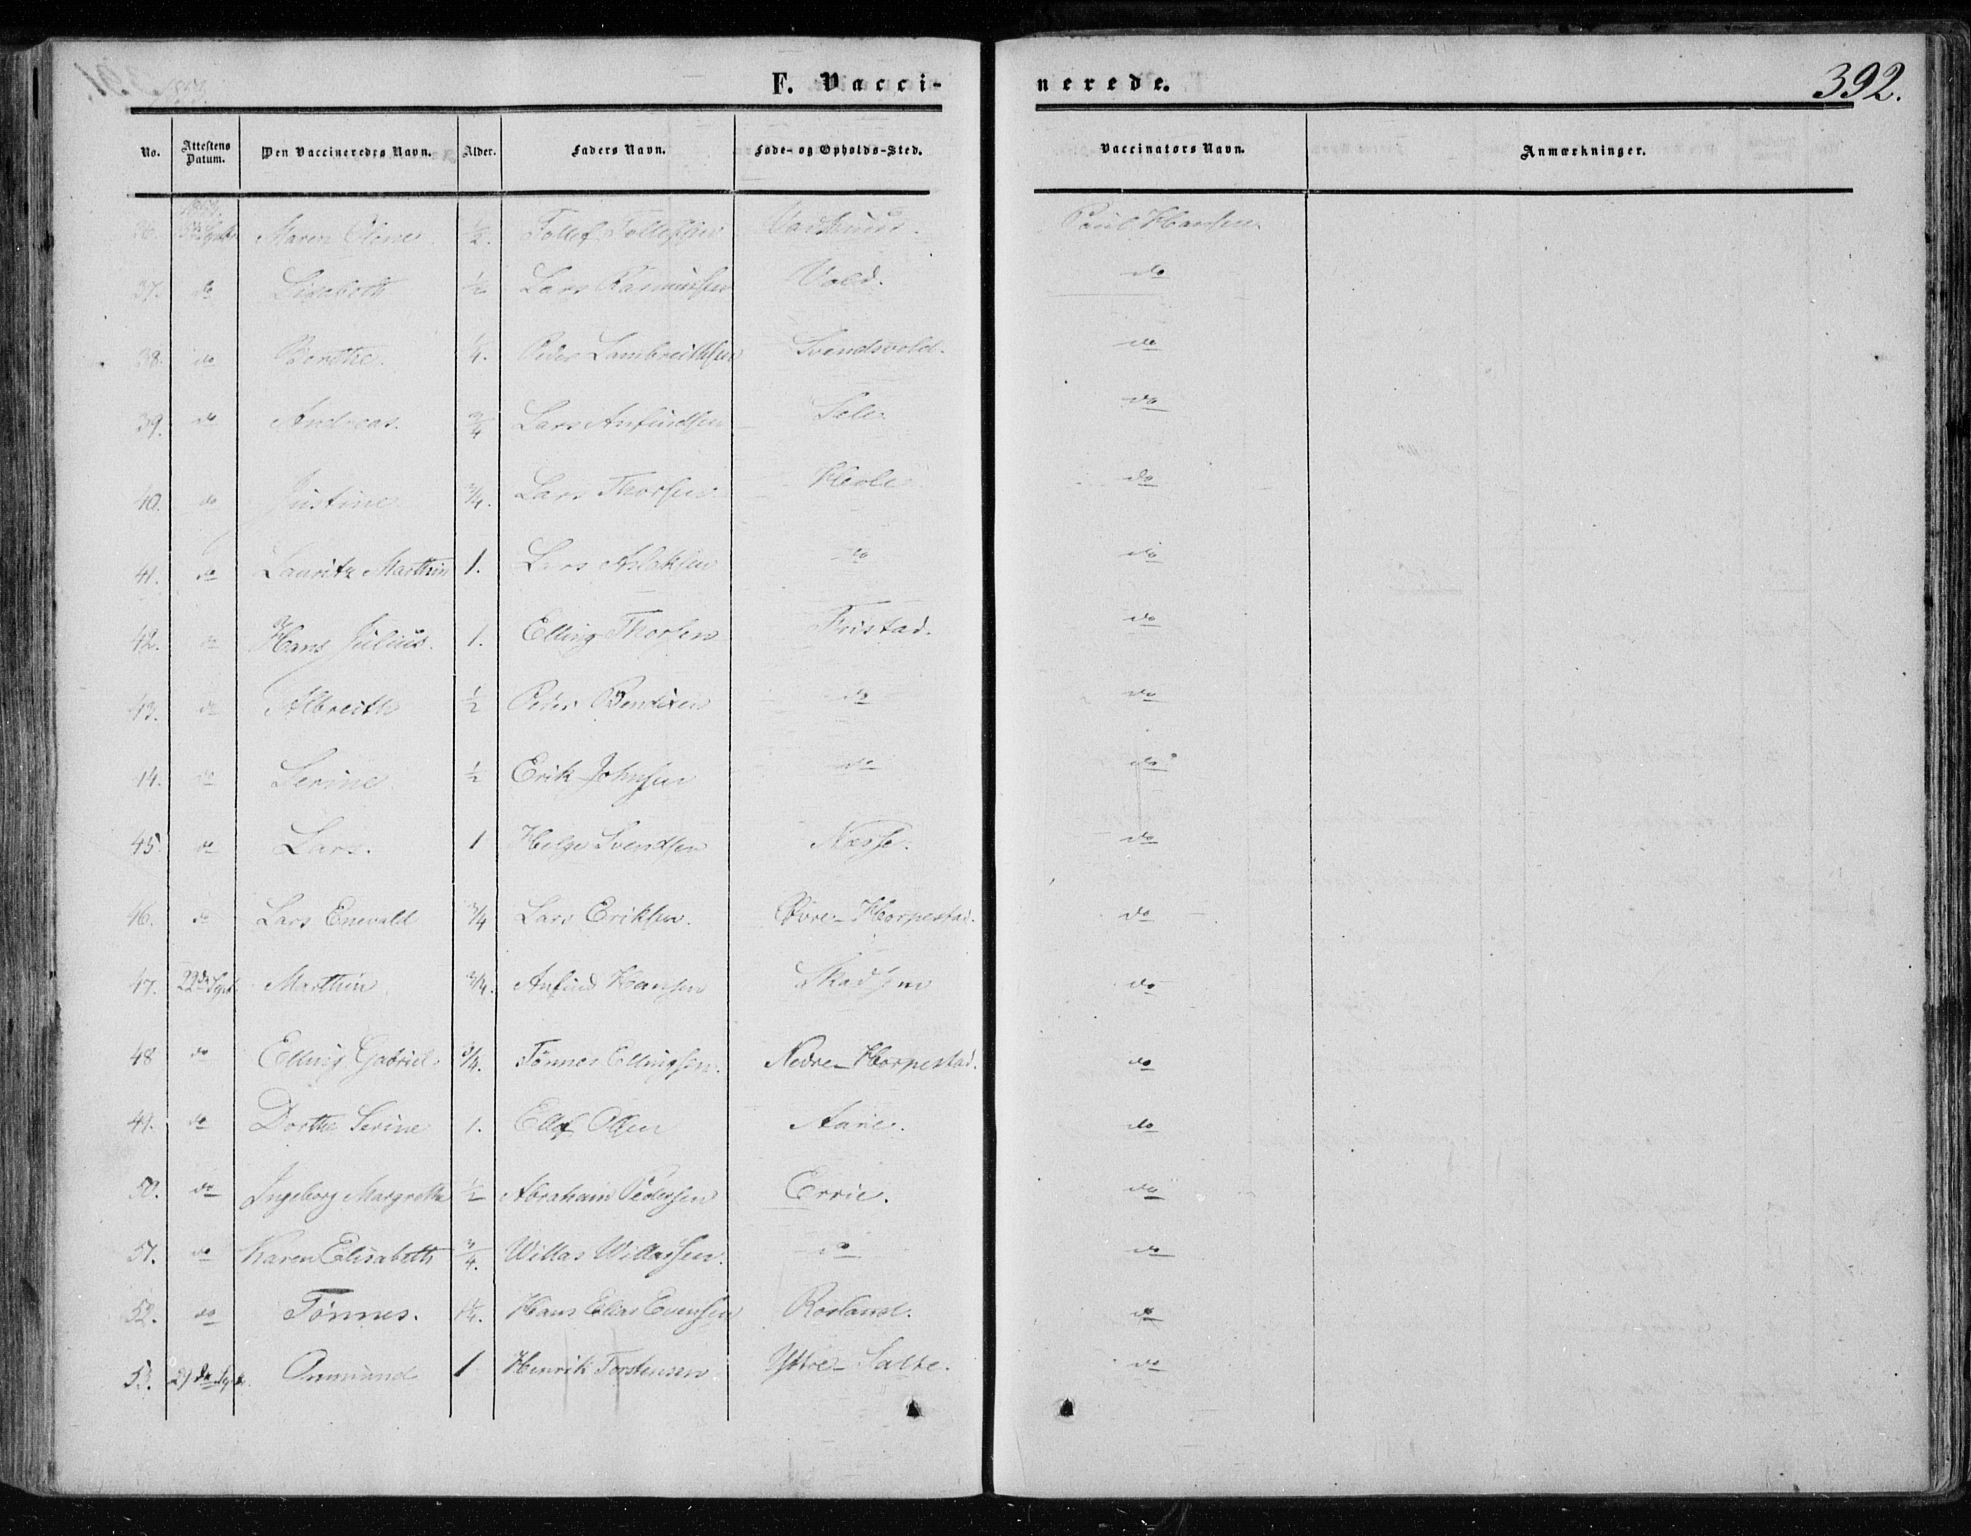 392.
F. Vacci- nerede.
No. Attestens Datum. Den Vaccineredes Navn. Alder. Faders Navn. Føde- og Opholds-Sted. Vaccinators Navn. Anmærkninger.
36. Maren 1/2. Tollef Tollefsen Paul Hansen.
37. do Lisabeth 1/2 Lars Rasmussen Vold. do
38. do Berthe. 1/4. Peder Lambreithsen Svendsvold. do
39. do Andreas. 3/4 Lars Anfindsen Sele do
40. do Justine 3/4. Lars Thorsen Hole do
41. do Lauritz Marthin 1. Lars Aslaksen do do
42. do Hans Julius. 1. Elling Thorsen Fristad. do
43. do Albreith 1/2 Peder Bentsen do do
44. do Serine 1/2 Erik Johnsen do do
45. do Lars. 1 Helge Svendsen Næsse. do
46. do Lars Enevald 3/4 Lars Eriksen. Øvre-Horpestad. do
47. 22de Sept. Marthin 3/4. Anfind Hansen Skadsem do
48 do Elling Gabriel 3/4. Tønnes Ellingsen. Nedre-Horpestad. do
49. do Dorthe Serine 1. Ellef Olsen do
50. do Ingeborg Margrethe 1/2 Abraham Pedersen Errie. do
51. do Karen Elisabeth 3/4. Willas Willassen. do do
52. do Tønnes. Hans Elias Evensen Rosland. do
53. Ommund 1 Henrik Torstensen Yttre-Salte. do